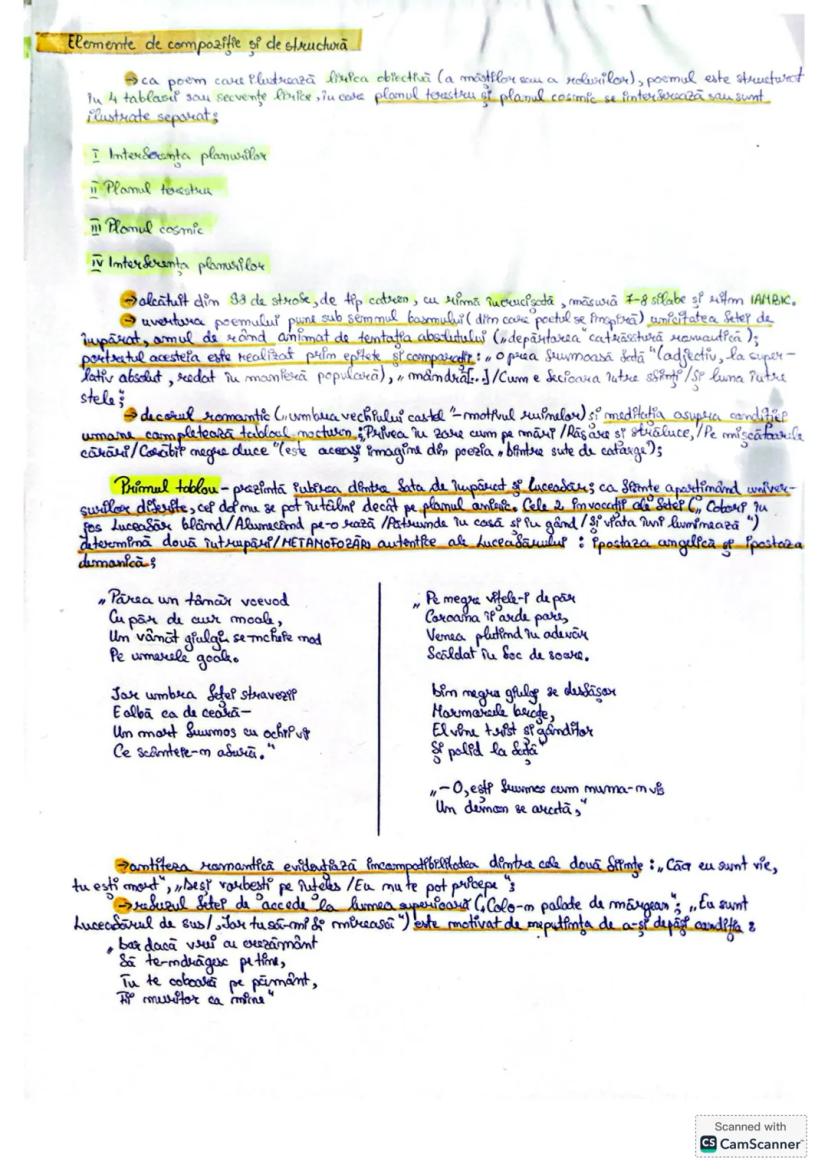 Elemente de compoziție și de structură
→ ca poem care ilustrează lirica obiectivă (a măștilor sau a rolurilor), poemul este structurat
în 4 tablouri sau secvențe lirice, în care planul terestru și planul cosmic se interferează sau sunt
ilustrate separat;
I Interferența planurilor
II Planul terestru
III Planul cosmic
IV Interferența planurilor
→ alcătuit din 98 de strofe, de tip catren, cu rimă încrucișată, măsură 7-8 silabe și ritm IAMBIC.
→ uvertura poemului pune sub semnul basmului (din care poetul se inspiră) unicitatea fetei de
împărat, omul de rând animat de tentația absolutului („depărtarea" ca trăsătură romantică);
portretul acesteia este realizat prin epitete și comparații: „O prea frumoasă fată" (adjectiv, la super-
lativ absolut, redat în manieră populară), „mândră[...]/Cum e fecioara între sfinți/Și luna între
stele;
→ decorul romantic („umbra vechiului castel"-motivul ruinelor) și meditația asupra condiției
umane completează tabloul nocturn: „Privea în zare cum pe mări/Răsare și străluce,/Pe mișcătoarele
cărări/Corăbii negre duce "(este aceași imagine din poezia „Dintre sute de catarge");
Primul tablou - prezintă iubirea dintre fata de împărat și Luceafăr; ca ființe aparținând univer-
surilor diferite, cei doi nu se pot întâlni decât pe planul oniric. Cele 2 invocații ale fetei („ Cobori în
jos Luceafăr blând/Alunecând pe-o rază/Pătrunde în casă și în gând/Și viața îmi luminează")
determină două întrupări/METAMOFOZĂRI autentice ale Luceafărului: ipostaza angelică și ipostaza
demonică;
„Părea un tânăr voevod
Cu păr de aur moale,
Un vânăt giulgi se-ncheie nod
Pe umerele goale.
Iar umbra feței străvezii
E albă ca de ceară-
Un mort frumos cu ochii vii
Ce scânteie-n afară."
„Pe negre vițele-i de păr
Coroana îi arde pare,
Venea plutind în adevăr
Scăldat în foc de soare.
Din negru giulgi se desfășor
Marmoreele brațe,
El vine trist și gânditor
Și palid la față"
„- O, ești frumos cum numa-n vis
Un demon se arată,"
→ antiteza romantică evidențiază incompatibilitatea dintre cele două ființe: „Căci eu sunt vie,
tu ești mort", „Deși vorbești pe înțeles /Eu nu te pot pricepe ";
→ refuzul fetei de a accede la lumea superioară („Colo-n palate de mărgean"; „Eu sunt
Luceafărul de sus/,Iar tu să-mi fii mireasă") este motivat de neputința de a-și depăși condiția:
„Dar dacă vrei cu crezământ
Să te-ndrăgesc pe tine,
Tu te coboară pe pământ,
Fii muritor ca mine"
Scanned with
CS CamScanner